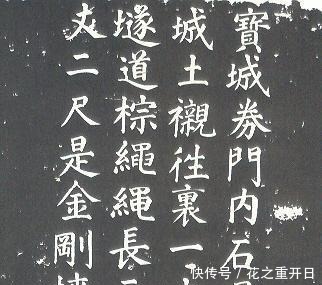 寶城券門内石
城土襯往裏一
墜道棕繩繩長三
丈二尺是金剛
快传号 / 花之重开日